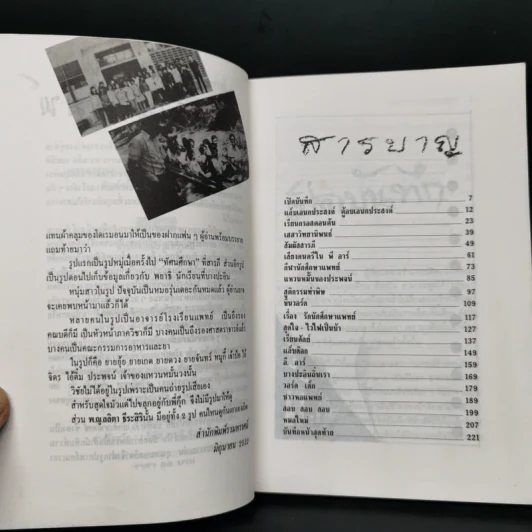 แทนผ้าคลุมของไดเรมอนมาให้เป็นของฝากแฟน ๆ ผู้อ่านพร้อมบรรยาย
แถมท้ายมาว่า
รูปแรกเป็นรูปหมู่เมื่อครั้งไป "ทัศนศึกษา" ที่สารภี ส่วนอีกรูป
เป็นรูปตอนไปเก็บข้อมูลเกี่ยวกับ พยาธิ นักเรียนที่บางปะอิน
หนุ่มสาวในรูป ปัจจุบันเป็นหมอรุ่นเดอะกันหมดแล้ว ผู้อ่านอาจ
จะเคยพบหน้ามาแล้วก็ได้
หลายคนในรูปเป็นอาจารย์โรงเรียนแพทย์ เป็นถึงรอง
คณบดีก็มี เป็นหัวหน้าภาควิชาก็มี บางคนเป็นถึงรองศาสตราจารย์แล้ว
บางคนเป็นคณะกรรมการอาหารและยา
ในรูปก็คือ ยายอุ้ย ยายเกด ยายดวง ยายจันทร์ หมูกี้
วิชัยไม่ได้อยู่ในรูปเพราะเป็นคนถ่ายรูปเสียเอง
สำหรับสุดใจมัวแต่ไปขลุกอยู่กับพี่กุ๊ก จึงไม่มีรูปมาให้ดู
ส่วน พ.ญ.ลลิตา ธีระสิรินั้น มีอยู่ทั้ง ๒ รูป
สำนักพิมพ์วรรณารมณ์
สารบาญ
เปิดบันทึก 7
แล็บเลนอกประสงค์ คู๊ลบเลนอกประสงค์ 12
เรียนกรอสตอนต้น 23
เสสาวิทยานิพนธ์ 39
สัมผัสสารภี 49
เสียงดนตรีใน พี อาร์ 61
กีฬานักศึกษาแพทย์ 73
แหวนหมั้นของประพจน์ 85
สูติกรรมทำพิษ 97
ขึ้นวอร์ด 109
เรื่อง รักนักศึกษาแพทย์ 117
สุดใจ - ไว้ไฟเป็นบ้า 127
เรียนศัลย์ 137
แล็บศัลย์ 149
อี. อาร์ 159
บางปะอินอินเรา 169
วอร์ด เด็ก 179
ชาวหอแพทย์ 189
สอน สอบ สอบ 199
หมอใหม่ 207
บันทึกหน้าสุดท้าย 221